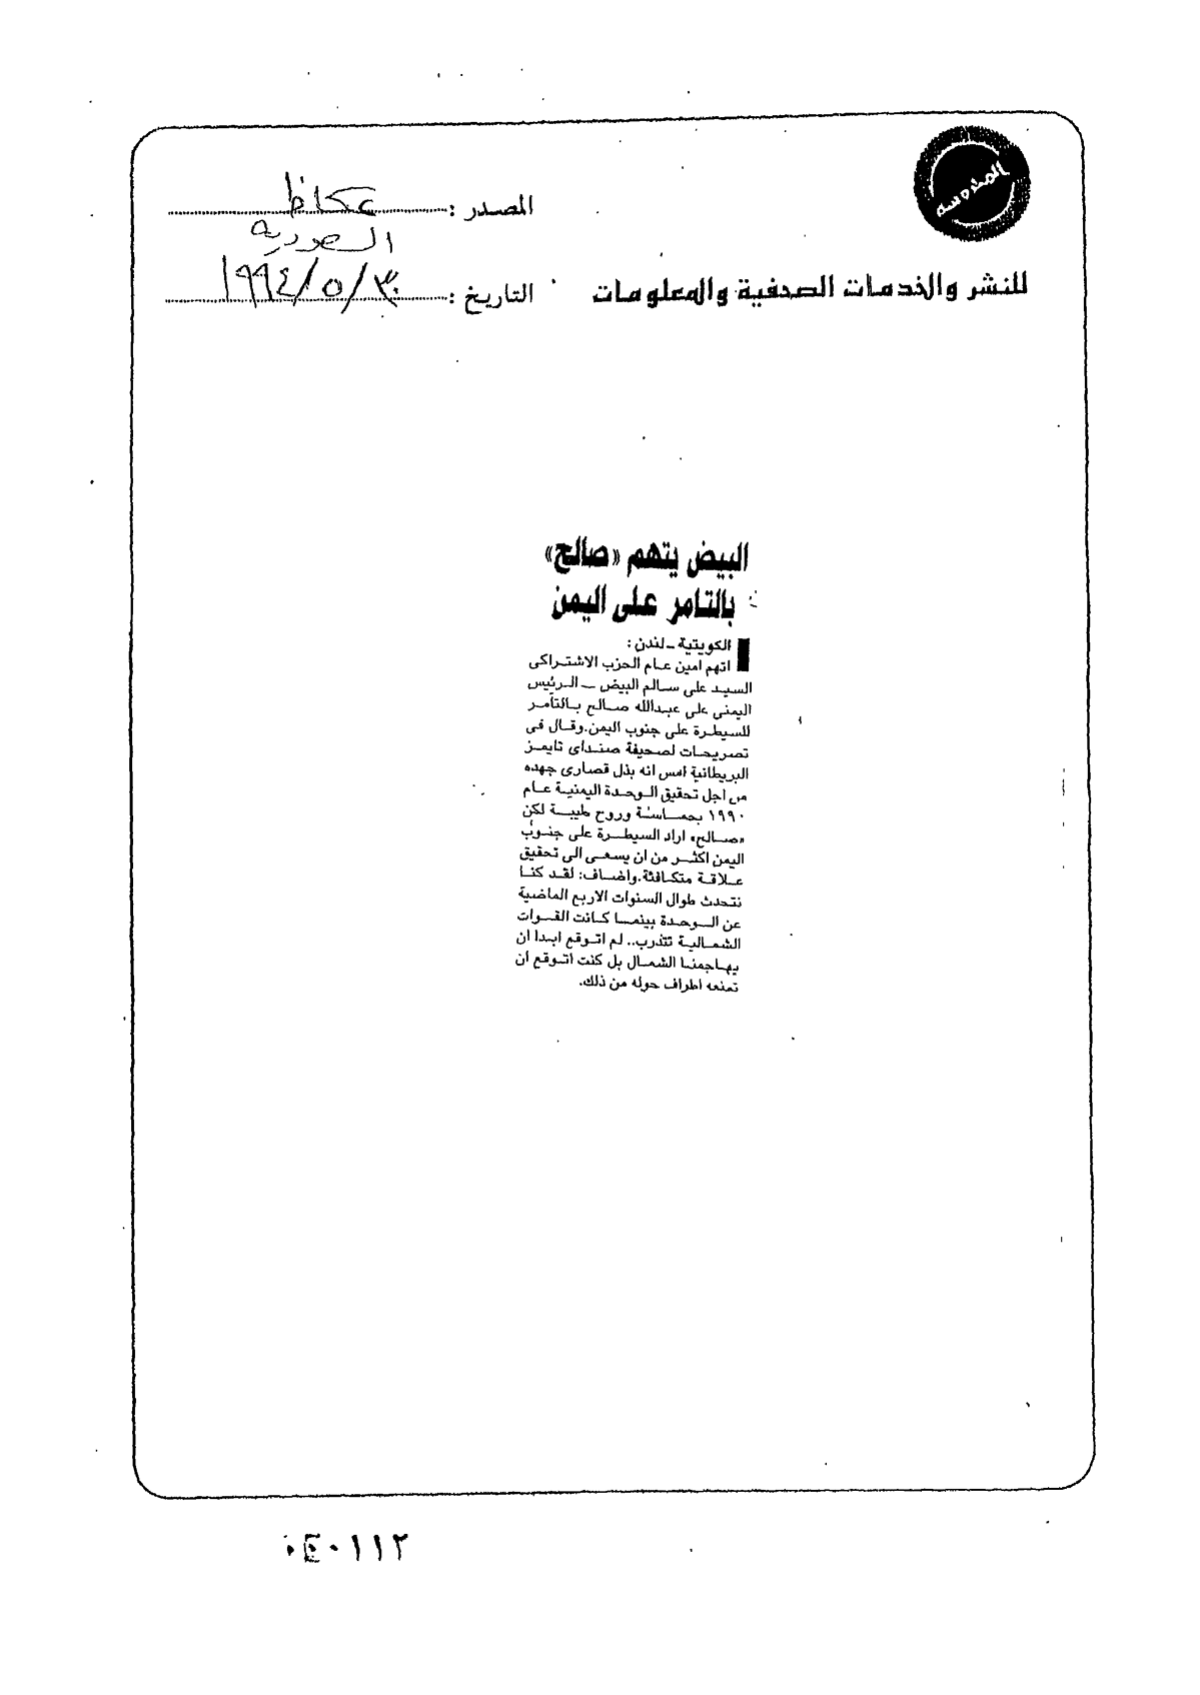 المصدر : عكاظ
السعودية
للنشر والخدمات الصحفية والمعلومات
التاريخ : ٣٠/٥/١٩٩٤
البيض يتهم «صالح»
بالتامر على اليمن
الكويتية ـ لندن :
اتهم امين عام الحزب الاشتراكى
السيد على سالم البيض ـ الرئيس
اليمنى على عبدالله صالح بالتآمر
للسيطرة على جنوب اليمن.وقال فى
تصريحات لصحيفة صنداى تايمز
البريطانية امس انه بذل قصارى جهده
من اجل تحقيق الوحدة اليمنية عام
١٩٩٠ بحماسة وروح طيبة لكن
«صالح» اراد السيطرة على جنوب
اليمن اكثر من ان يسعى الى تحقيق
علاقة متكافئة.واضاف: لقد كنا
نتحدث طوال السنوات الاربع الماضية
عن الوحدة بينما كانت القوات
الشمالية تتدرب.. لم اتوقع ابدا ان
يهاجمنا الشمال بل كنت اتوقع ان
تمنعه اطراف حوله من ذلك.